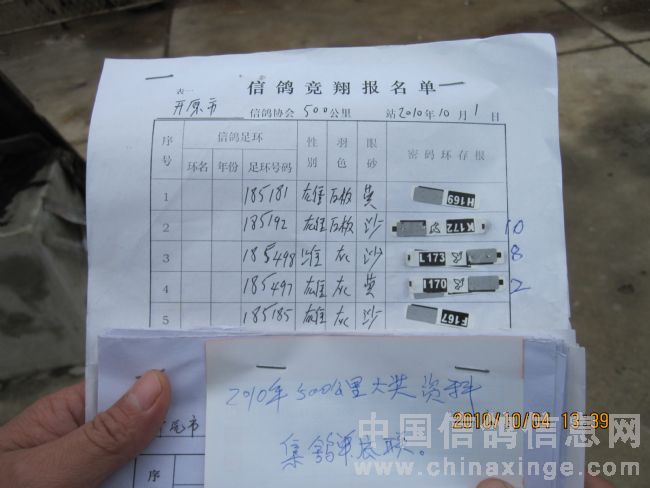 信鸽竞翔报名单
表一
开原市 信鸽协会 500公里 站2010年10月1日
序号 信鸽足环 性别 羽色 眼砂 密码环存根
环名 年份 足环号码
1 185181 雄 瓦板 黄 H169
2 185192 雄 瓦板 沙 K172 10
3 185498 雌 灰 沙 L173 8
4 185497 雄 灰 黄 I170 2
5 185185 雄 灰 沙 F167
2010年500公里大奖资料
2010/10/04 13:39
集鸽单底联。
中国信鸽信息网
www.chinaxinge.com
序